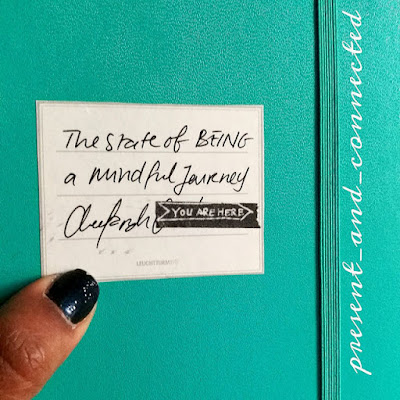 The state of BEING
a mindful Journey
YOU ARE HERE
LEUCHTTURM1917
present_and_connected